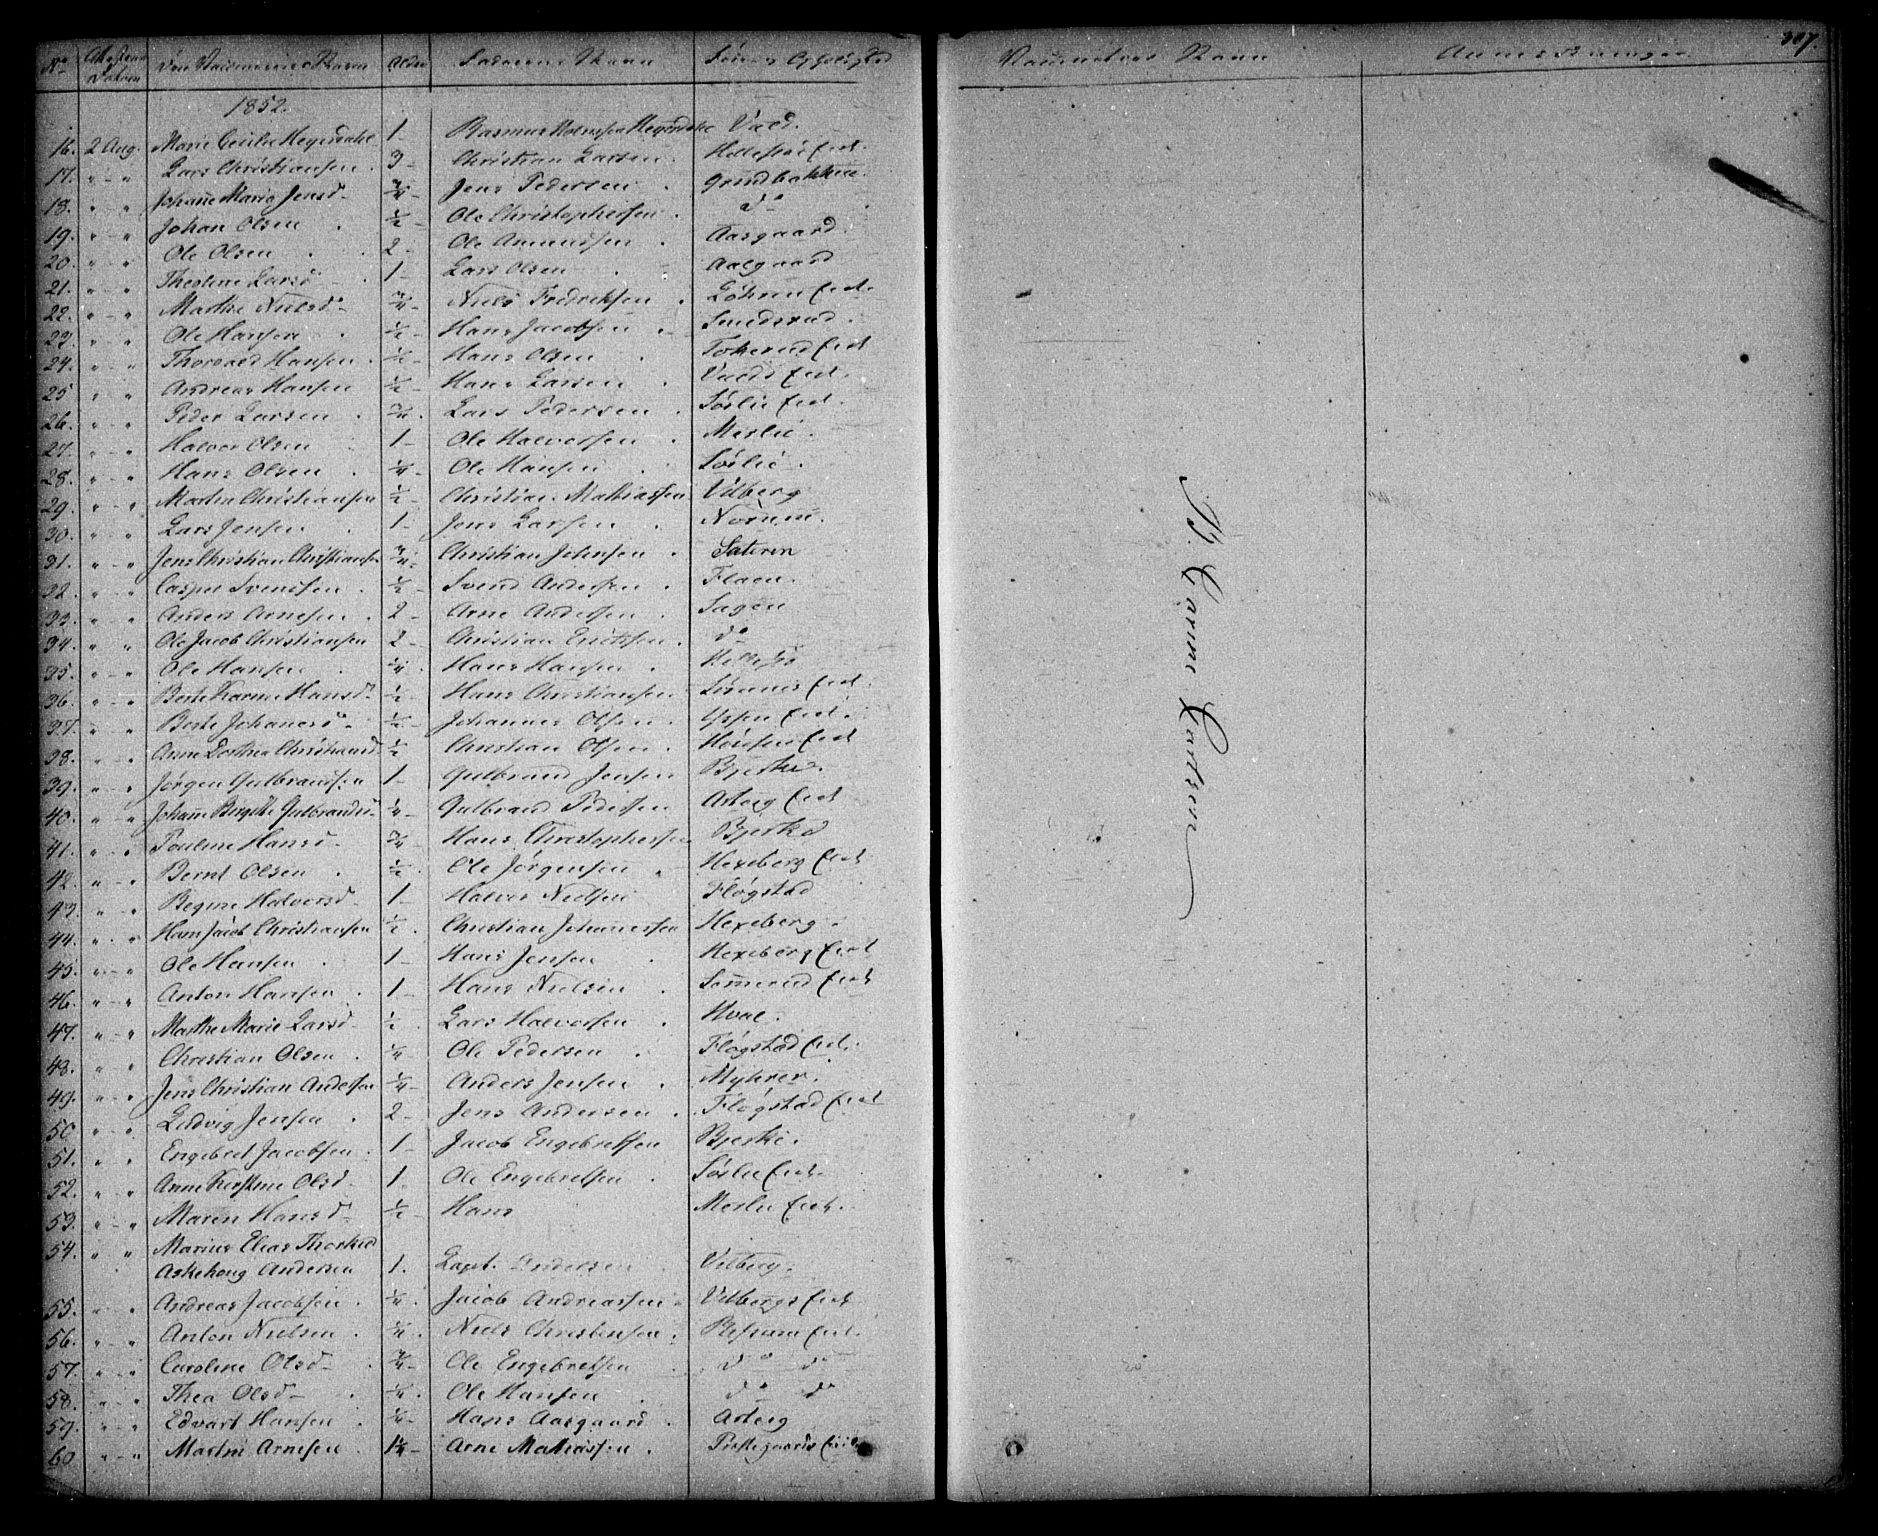 No Attestens Datum Den Vaccineredes Navn Alder Faderens Navn Sammes Opholdsted Vaccinators Navn Anmærkninger 307.
1852.
16. 2 Aug. Marie Cecilie 1 - Rasmus Vald.
17. " - " Lars Christiansen . 3 - Christian Larsen . Eiet
18. " - " Johanne Marie Jensd - 3/4 - Jens Pedersen . Grindbakken .
19. " - " Johan Olsen . 1/2 - Ole Christophersen . do
20. " - " Ole Olsen . 2 - Ole Amundsen . Aasgaard .
21. " - " Theoline Larsd - 1 - Lars Olsen . Aalgaard
22. " - " Marthe Nielsd - 3/4 - Niels Fredriksen . Løhren Eiet .
23. " - " Ole Hansen . 1/2 - Hans Jacobsen . Smedsrud .
24. " - " Thorvald Hansen . 1/2 - Hans Olsen . Tokerud Eiet
25 " - " Andreas Hansen 1/2 - Hans Larsen . Valds Eiet .
26. " - " Peder Larsen . 3/4 . Lars Pedersen . Sørlie Eiet .
27. " - " Halvor Olsen 1 - Ole Halvorsen . Mørlie .
28. " - " Hans Olsen . 1/4 - Ole Hansen . Sørlie .
29. " - " Martin Christiansen 1/2 - Christian Mathiassen Vilberg
30. " - " Lars Jensen . 1 - Jens Larsen . Norum .
31. " - " Jens Christian Christians. 3/4 - Christian Johnsen . Sateren
32. " - " Casper Svensen . 1/2 - Svend Andersen . Flaen .
33. " - " Anders Arnesen . 2 - Arne Andersen . Sagen
34. " " Ole Jacob Christiansen 2 - Christian Ericksen . do
35. " - " Ole Hansen . 1/4 . Hans Hansen .
36. " - " Berte Karine Hansd - 1/2 - Hans Christiansen Eiet .
37. " - " Berte Johanesd - 1/2 - Johannes Olsen . Eiet .
38. " - " Anne Dorthea Christiansd 1/2 Christian Olsen . Eiet
39. " - " Jørgen Gulbrandsen 1 - Gulbrand Jensen Bjerke .
40. " - " Johanne Birgitte Gulbrandsd - 1/4 - Gulbrand Pedersen Asberg Eiet
41. " - " Pouline Hansd - 3/4 - Hans Christophersen Bjerke
42. " - " Bernt Olsen . 1/2 . Ole Jørgensen . Hexeberg Eiet
43. " - " Regine Halvorsd - 1 - Halvor Nielsen Fløgstad
44. " - " Hans Jacob Christiansen 1/2 . Christian Johanessen Hexeberg .
45. " - " Ole Hansen . 1 - Hans Jensen . Hexeberg Eiet
46. " - " Anton Hansen . 1 - Hans Nielsen . Sømerud Eiet
47. " - " Marthe Marie Larsd - 1/2 . Lars Halvorsen . Hval .
48. " - " Christian Olsen . 1/4 - Ole Pedersen . Fløgstad Eiet .
49. " - " Jens Christian Andersen 1/4 - Anders Jensen . Myhrer .
50 " - " Ludvig Jensen . 2 - Jens Andersen . Fløgstad Eiet
51. " - " Engebret Jacobsen . 1 - Jacob Engebretsen Bjerke .
52. " - " Anne Kirstine Olsd - 1 . Ole Engebretsen . Sørlie Eiet .
53. " - " Maren Hansd - 1/2 - Hans Mørlie Eiet .
54. " " Marius Elias Thorkild
Askehoug Andersen 1 . Capt. Andersen Vilberg .
55. " - " Andreas Jacobsen . 1/4 . Jacob Andreassen . Vilbergs Eiet
56. " - " Anton Nielsen . 3/4 . Niels Christensen . Eiet .
57. " - " Caroline Olsd - . 3/4 - Ole Engebretsen . do do
58. " - " Thea Olsd - . 1/4 . Ole Hansen . do do
59. " - " Edvart Hansen . 1/4 - Hans Aasgaard . Asberg
60 " - " Martin Arnesen . 1 1/4 - Arne Mathiassen . Præstegaards Eiet
N. Carine Larsen